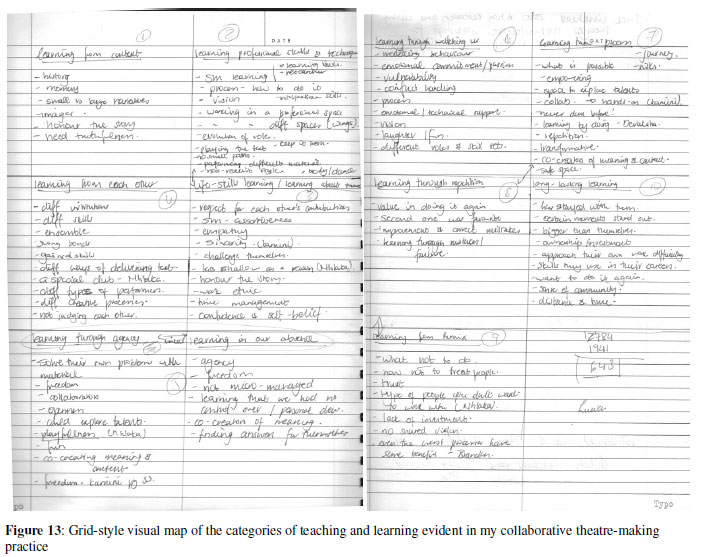 ①
②
DATE
learning from content
- history
- memory
- small vs large narratives
- images
- honour the story
- need truthfulness.
learning professional skills & techniques
- learning lines
- researcher
- sm learning
- process - how to do it
- vision
- working in a professional space
- " " diff spaces (wings)
- evolution of role.
- playing the text
- no small parts
- performing difficult material
- non-naturalistic style
- body/dance
learning from each other
④
- diff
- diff skills
- ensemble
- strong bonds
- gained skills
- diff ways of delivering text
- a special club - Nhlaka.
- diff types of performers.
- diff creative processes
- not judging each other.
life-skills learning / learning about
③
- respect for each other's contributions
- sm - assertiveness
- empathy
- sincerity (Kamini)
- challenge themselves.
- less shallow as a person (Nhlaka)
- honour the story.
- work ethic
- time management
- confidence & self-belief.
learning through agency
- solve their own problems with
material
- freedom
- collaboration
- ownership
- could explore talents.
- playfulness (Nhlaka)
- fun
- co-creating meaning &
content
- freedom - Kamini pg 33.
learning in our absence
- agency
- freedom
- not micro-managed
- learning that we had no
control over / personal dev.
- co-creation of meaning.
- finding answers for themselves
learning through watching us
⑥
- modelling behaviour
- emotional commitment/passion
- vulnerability
- conflict handling
- process
- emotional/technical support.
- vision
- laughter/fun.
- different roles & skill sets.
learning through process
⑦
- journey
- what is possible
- empowering
- space to explore talents
- collab. → hands-on (Kamini)
- never done before!
- learning by doing - Devaksha.
- repetition.
- transformative.
- co-creation of meaning & content.
- safe space
learning through repetition
⑧
- value in doing it again
- second one was favourite
- improvement & correct mistakes
- learning through mistakes/
failure
long-lasting learning
⑩
- has stayed with them.
- certain moments stand out.
- bigger than themselves.
- ownership/investment
- approach their own work differently
- skills they use in their careers.
- want to do it again.
- sense of community.
- distance & time.
learning from trauma
⑨
- what not to do.
- how not to treat people.
- trust
- type of people you didn't want
to work with (Nhlaka)
- lack of investment.
- no shared vision
- even the worst processes have
some benefits - Brandon.
12784
1941
643
Typo
Figure 13: Grid-style visual map of the categories of teaching and learning evident in my collaborative theatre-making
practice